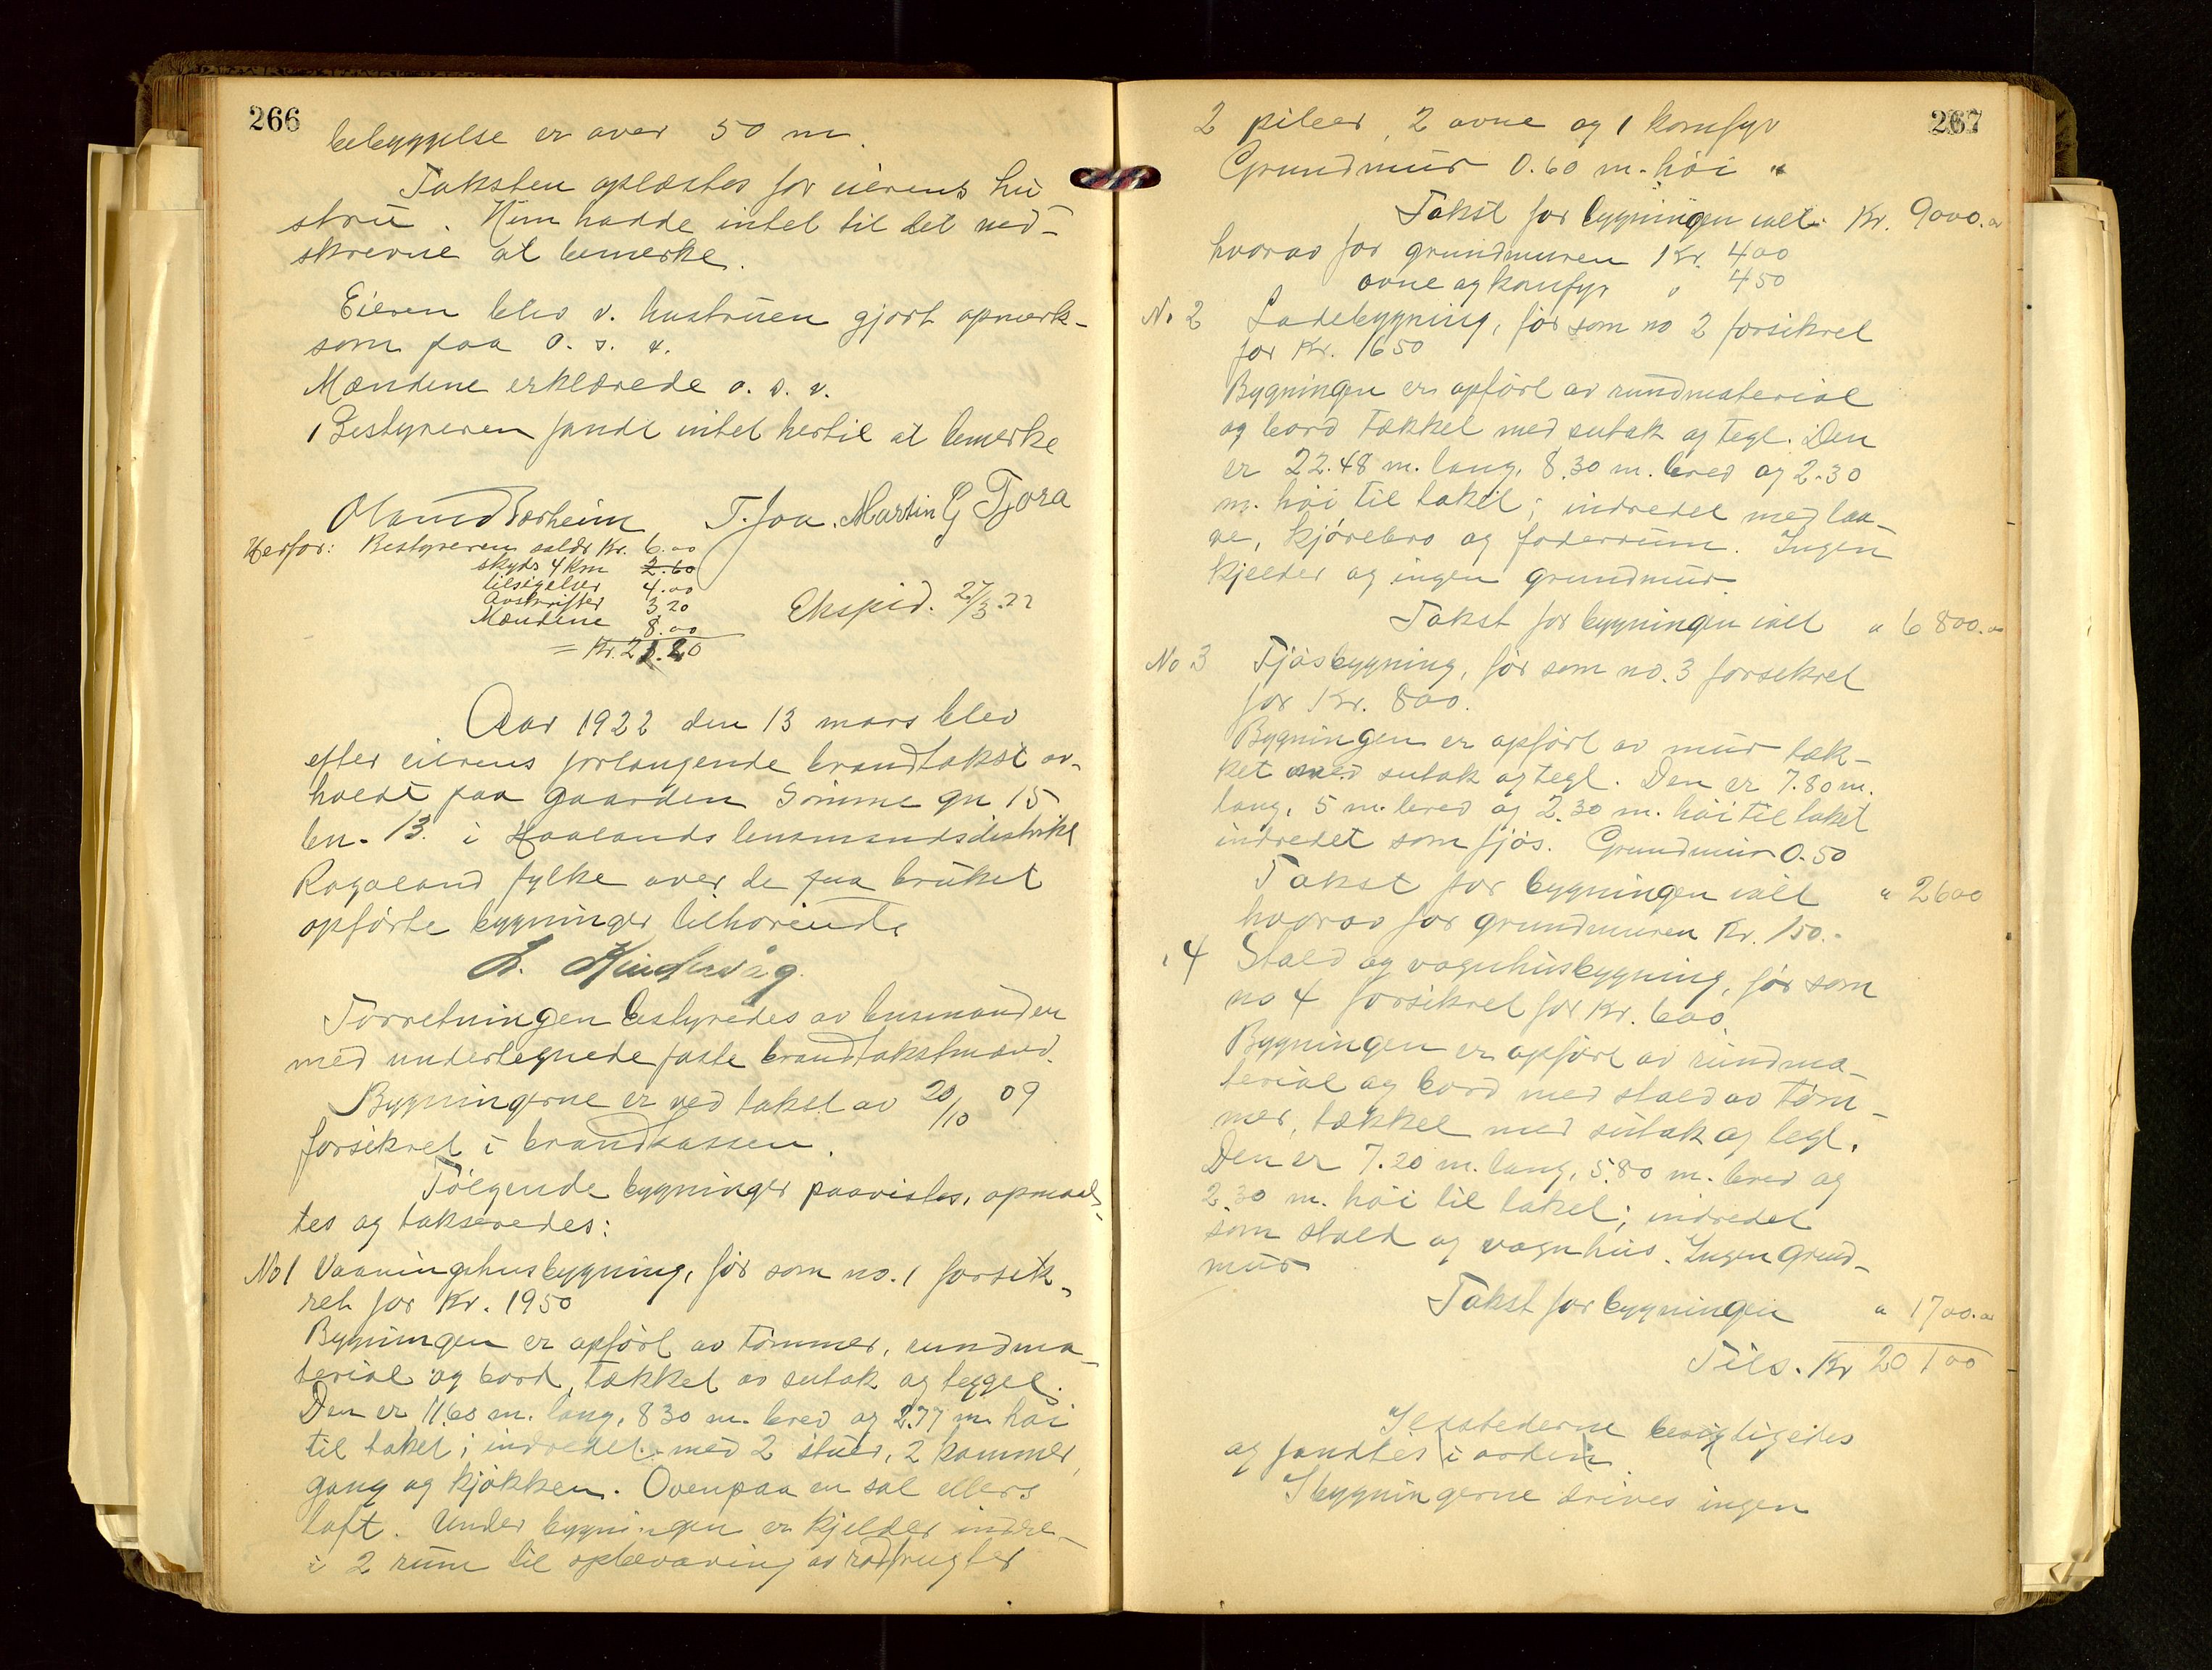 266
bebyggelse er over 50 m.
Taksten oplæstes for eierens hu
stru. Hun hadde intet til det ned-
skrevne at bemerke.
Eieren blev v. hustruen gjort opmerk-
som paa o. s. v.
Mændene erklærede o. s. v.
Bestyreren fandt intet hertil at bemerke
T. Joa. Martin G Tjora
Herfor: Bestyreren salær Kr. 6.00
skyds 4 Km 2.60
tilsigelser 4.00
Avskrifter 3.20
Mændene 8.00
= Kr. 21.20
Ekspid. 27/3.22
Aar 1922 den 13 mars blev
efter eierens forlangende brandtakst av-
holdt paa gaarden Sømme gn 15
bn. 13. i Haalands lensmandsdistrikt
Rogaland fylke over de paa bruket
opførte bygninger tilhørende
L.
Forretningen bestyredes av lensmanden
med undertegnede faste brandtakstmænd.
Bygningerne er ved takst av 20/10 09
forsikret i brandkassen.
Følgende bygninger paavistes, opmaal-
tes og takseredes:
No 1 Vaaningshusbygning, før som no. 1 forsik-
ret for Kr. 1950
Bygningen er opført av tømmer, rundma-
terial og bord, tækket av sutak og teggel.
Den er 11.60 m. lang, 8 30 m. bred og 2.77 m. høi
til taket; indredet med 2 stuer, 2 kammer,
gang og kjøkken. Ovenpaa en sal ellers
loft. Under bygningen er kjelder indre-
i 2 rum til opbevaring av rodfrugter
267
2 piber, 2 ovne og 1 komfyr
Grundmur 0.60 m. høi
Takst for bygningen ialt Kr. 9000.00
hvorav for grundmuren Kr. 400
ovne og komfyr " 450
No 2 Ladebygning, før som no 2 forsikret
for Kr. 1650
Bygningen er opført av rundmaterial
og bord tækket med sutak og tegl. Den
er 22.48 m. lang, 8.30 m. bred og 2.30
m. høi til taket; indredet med laa-
ve, kjørebro og foderrum. Ingen
kjelder og ingen grundmur
Takst for bygningen ialt " 6 800.00
No 3 Fjøsbygning, før som no. 3 forsikret
for Kr. 800.
Bygningen er opført av mur tæk-
ket med sutak og tegl. Den er 7.80 m.
lang, 5 m. bred og 2.30 m. høi til taket
indredet som fjøs. Grundmur 0.50
Takst for bygningen ialt " 2600
hvorav for grundmuren Kr. 150.-
" 4 Stald og vognhusbygning, før som
no 4 forsikret for Kr. 600.
Bygningen er opført av rundma-
terial og bord med stald av tøm-
mer, tækket med sutak og tegl.
Den er 7.20 m. lang, 5.80 m. bred og
2.30 m. høi til taket; indredet
som stald og vognhus. Ingen grund-
mur
Takst for bygningen " 1700.00
Tils. Kr 20 100
Ildstederne besigtigedes
og fandtes i orden.
I bygningerne drives ingen